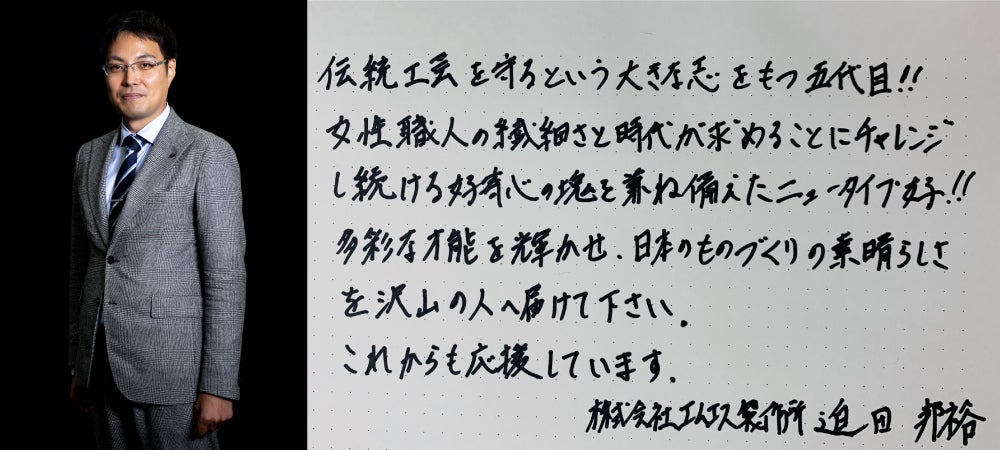 伝統工芸を守るという大きな志をもつ五代目!!
女性職人の繊細さと時代が求めることにチャレンジ
し続ける好奇心の塊を兼ね備えたニュータイプ女子!!
多彩な才能を輝かせ、日本のものづくりの素晴らしさ
を沢山の人へ届けて下さい。
これからも応援しています。
株式会社エムエス製作所 迫田 邦裕